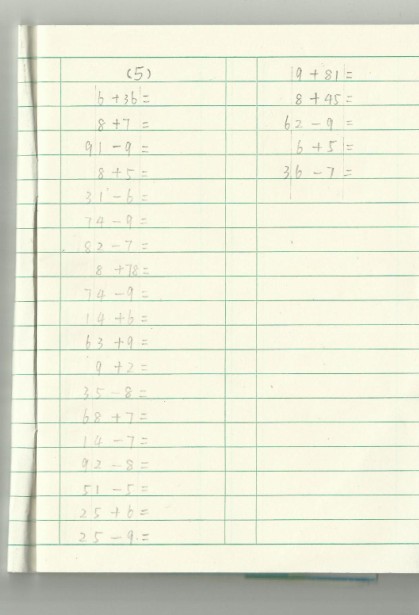 (5)
6+36=
8+7=
91-9=
8+5=
31-6=
74-9=
82-7=
8+78=
74-9=
14+6=
63+9=
9+2=
35-8=
68+7=
14-7=
92-8=
51-5=
25+6=
25-9=
9+81=
8+45=
62-9=
6+5=
36-7=